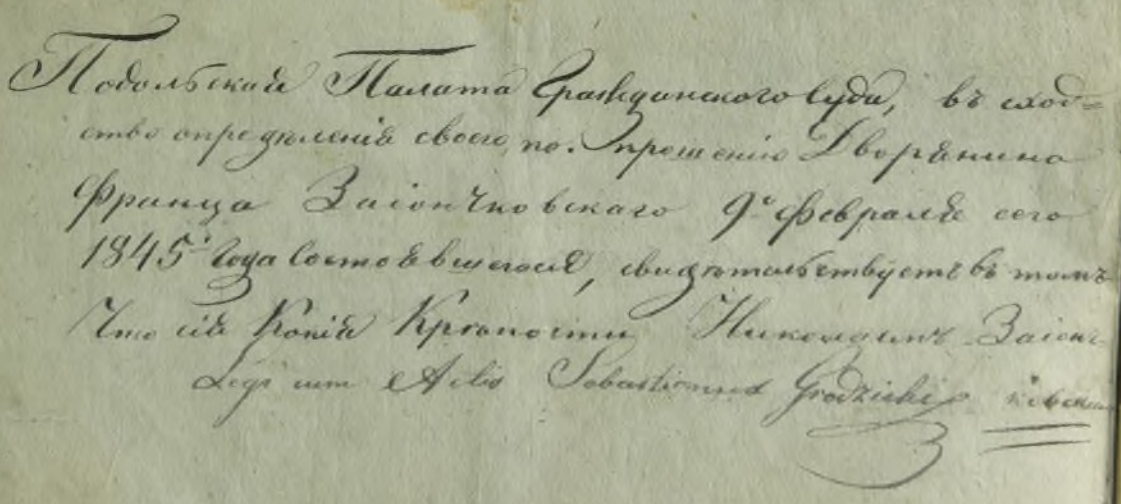 Подольская Палата Гражданскаго Суда, въ сход=
ство опредѣленія своего, по прошенію Дворянина
Франца Заіончковскаго 9го Февраля сего
1845го Года Состоявшегося, свидѣтельствуетъ въ томъ
Что сія Копія Крѣпости Никодимъ Заіонч-
ковским
Legi cum Actis Sebastianus Grodzicki